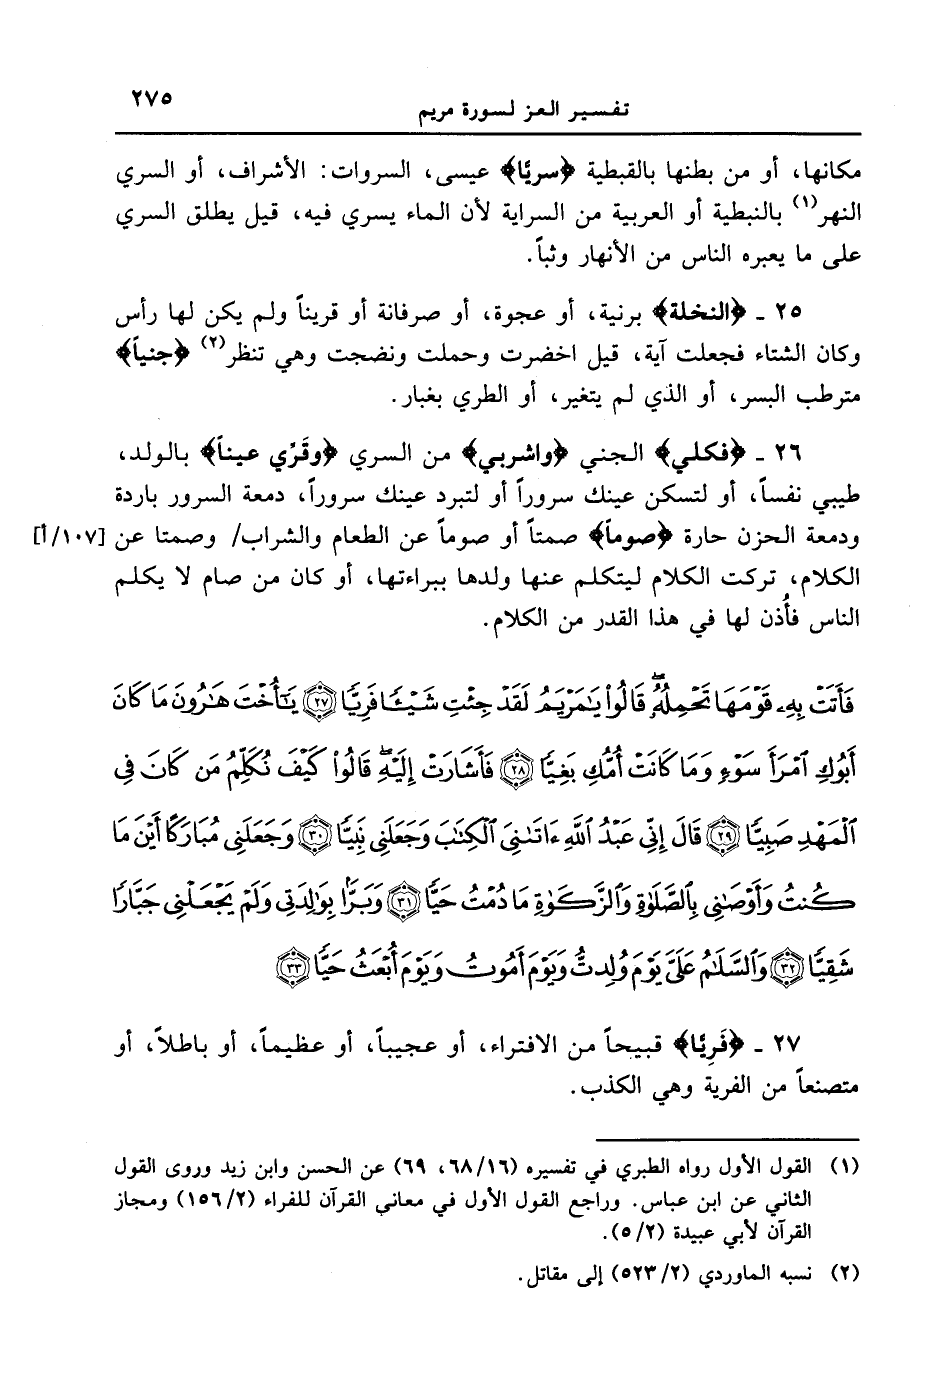 تفسير العز لسورة مريم ٢٧٥
مكانها، أو من بطنها بالقبطية ﴿سريًّا﴾ عيسى، السروات: الأشراف، أو السري
النهر(١) بالنبطية أو العربية من السراية لأن الماء يسري فيه، قيل يطلق السري
على ما يعبره الناس من الأنهار وثباً.
٢٥ ـ ﴿النخلة﴾ برنية، أو عجوة، أو صرفانة أو قريناً ولم يكن لها رأس
وكان الشتاء فجعلت آية، قيل اخضرت وحملت ونضجت وهي تنظر(٢) ﴿جنياً﴾
مترطب البسر، أو الذي لم يتغير، أو الطري بغبار.
٢٦ ـ ﴿فكلي﴾ الجني ﴿واشربي﴾ من السري ﴿وقَرِّي عيناً﴾ بالولد،
طيبي نفساً، أو لتسكن عينك سروراً أو لتبرد عينك سروراً، دمعة السرور باردة
ودمعة الحزن حارة ﴿صوماً﴾ صمتاً أو صوماً عن الطعام والشراب/ وصمتا عن [١٠٧/أ]
الكلام، تركت الكلام ليتكلم عنها ولدها ببراءتها، أو كان من صام لا يكلم
الناس فأُذن لها في هذا القدر من الكلام.
فَأَتَتْ بِهِۦ قَوْمَهَا تَحْمِلُهُۥۖ قَالُوا۟ يَٰمَرْيَمُ لَقَدْ جِئْتِ شَيْـًٔا فَرِيًّا ٢٧ يَٰٓأُخْتَ هَٰرُونَ مَا كَانَ
أَبُوكِ ٱمْرَأَ سَوْءٍ وَمَا كَانَتْ أُمُّكِ بَغِيًّا ٢٨ فَأَشَارَتْ إِلَيْهِۖ قَالُوا۟ كَيْفَ نُكَلِّمُ مَن كَانَ فِى
ٱلْمَهْدِ صَبِيًّا ٢٩ قَالَ إِنِّى عَبْدُ ٱللَّهِ ءَاتَىٰنِىَ ٱلْكِتَٰبَ وَجَعَلَنِى نَبِيًّا ٣٠ وَجَعَلَنِى مُبَارَكًا أَيْنَ مَا
كُنتُ وَأَوْصَٰنِى بِٱلصَّلَوٰةِ وَٱلزَّكَوٰةِ مَا دُمْتُ حَيًّا ٣١ وَبَرًّۢا بِوَٰلِدَتِى وَلَمْ يَجْعَلْنِى جَبَّارًا
شَقِيًّا ٣٢ وَٱلسَّلَٰمُ عَلَىَّ يَوْمَ وُلِدتُّ وَيَوْمَ أَمُوتُ وَيَوْمَ أُبْعَثُ حَيًّا ٣٣
٢٧ ـ ﴿فَرِيًّا﴾ قبيحاً من الافتراء، أو عجيباً، أو عظيماً، أو باطلاً، أو
متصنعاً من الفرية وهي الكذب.
(١) القول الأول رواه الطبري في تفسيره (٦٨/١٦، ٦٩) عن الحسن وابن زيد وروى القول
الثاني عن ابن عباس. وراجع القول الأول في معاني القرآن للفراء (١٥٦/٢) ومجاز
القرآن لأبي عبيدة (٥/٢).
(٢) نسبه الماوردي (٥٢٣/٢) إلى مقاتل.